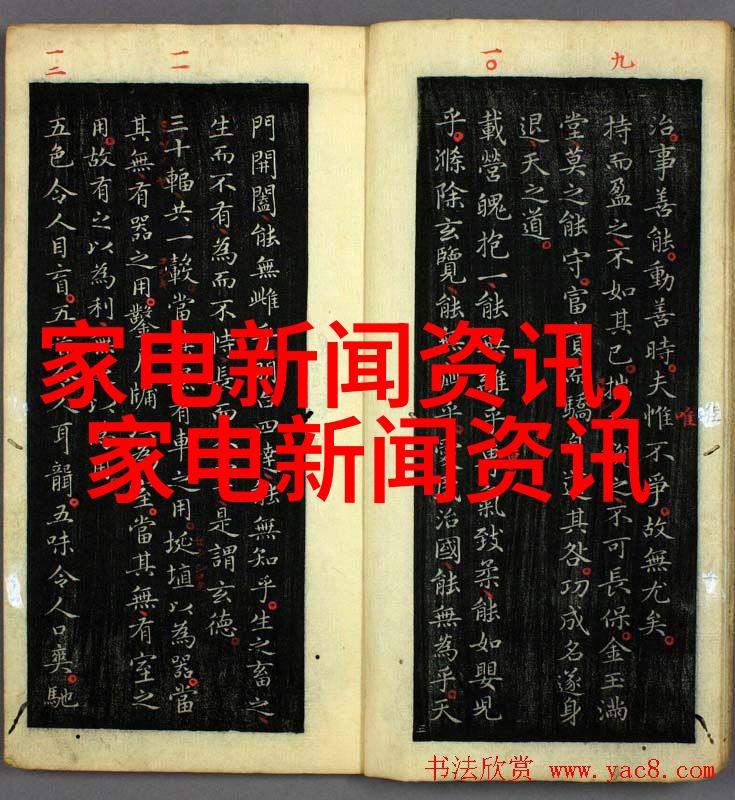 九
一〇
治事善能動善時夫惟不爭故無尤矣
唯
持而盈之不如其已之不可長保金玉滿
堂莫之能守富而驕其咎功成名遂身
退天之道
載營魄抱一能離乎氣致柔能如嬰兒
乎滌除玄覽能乎治國能無為乎天
一一
一二
門開闔能無雌四達能無知乎生之畜之
生而不有為而不恃長而是謂玄德
三十輻共一轂當有車之用埏埴以為器當
其無有器之用鑿戶牖室當其無有室之
用故有之以為利
五色令人目盲五人耳聾五味令人口爽馳
家电新闻资讯,
家电新闻资讯
书法欣赏 www.yac8.com